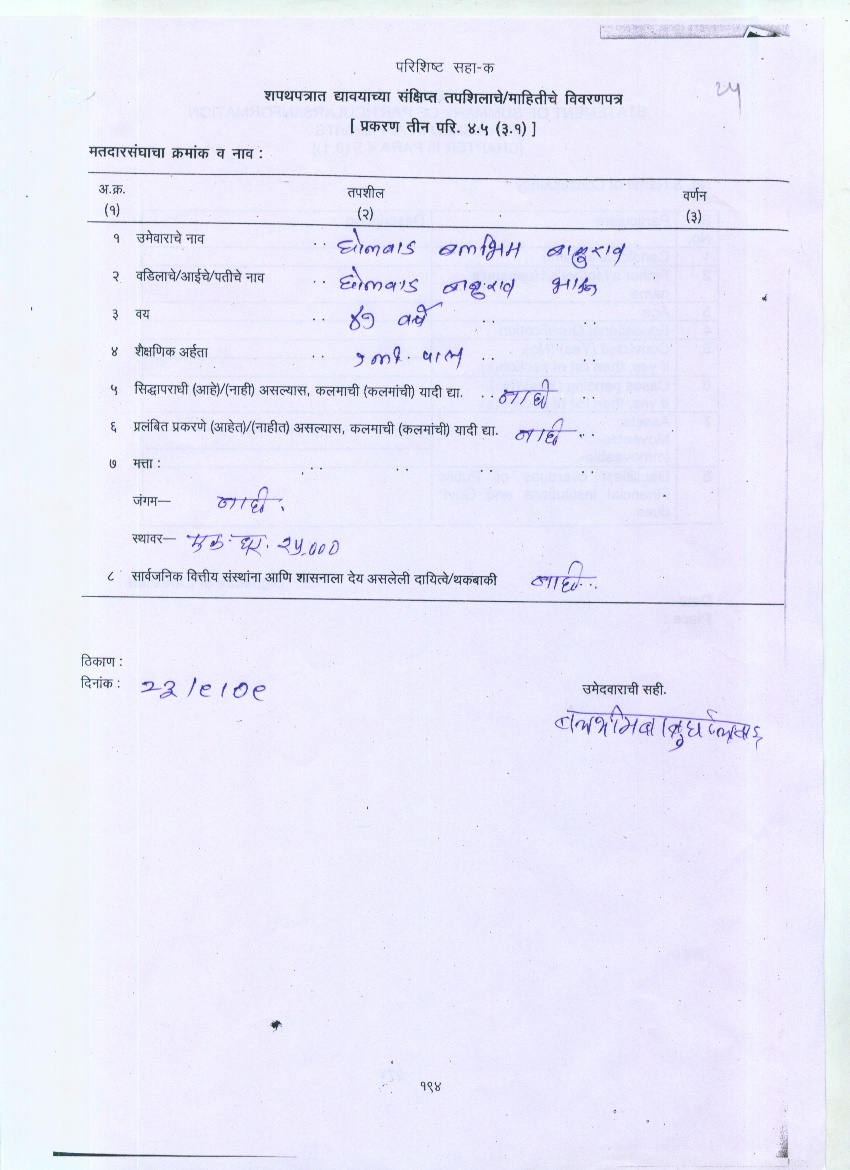 २५
परिशिष्ट सहा-क
शपथपत्रात द्यावयाच्या संक्षिप्त तपशिलाचे/माहितीचे विवरणपत्र
[ प्रकरण तीन परि. ४.५ (३.१) ]
मतदारसंघाचा क्रमांक व नाव :
अ.क्र. तपशील वर्णन
(१) (२) (३)
१ उमेवाराचे नाव .. घोलवाड बलभिम बाबुराव
२ वडिलाचे/आईचे/पतीचे नाव .. घोलवाड बाबुराव
३ वय .. ४७ वर्षे ..
४ शैक्षणिक अर्हता .. पास ..
५ सिद्धापराधी (आहे)/(नाही) असल्यास, कलमाची (कलमांची) यादी द्या. .. नाही ..
६ प्रलंबित प्रकरणे (आहेत)/(नाहीत) असल्यास, कलमाची (कलमांची) यादी द्या. नाही ..
७ मत्ता : .. .. .. ..
जंगम— नाही.
स्थावर— एक घर. २५,०००
८ सार्वजनिक वित्तीय संस्थांना आणि शासनाला देय असलेली दायित्वे/थकबाकी नाही..
ठिकाण :
दिनांक : २३/९/०९
उमेदवाराची सही.
१९४